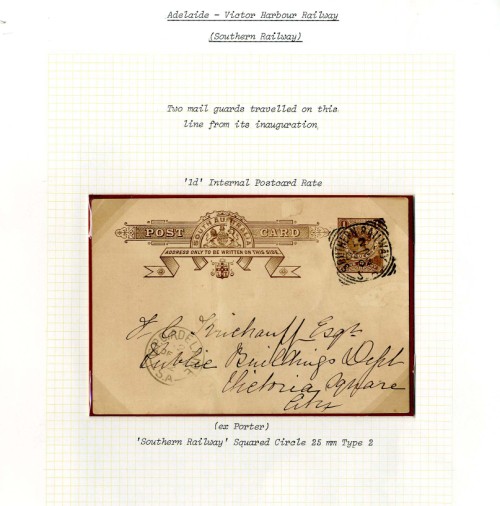 Adelaide - Victor Harbour Railway
(Southern Railway)
Two mail guards travelled on this
line from its inauguration.
'1d' Internal Postcard Rate
SOUTH AUSTRALIA
POST CARD
ADDRESS ONLY TO BE WRITTEN ON THIS SIDE
SOUTHERN RAILWAY
Esqr
Public Buildings Dept
Victoria Square
City
(ex Porter)
'Southern Railway' Squared Circle 25 mm Type 2